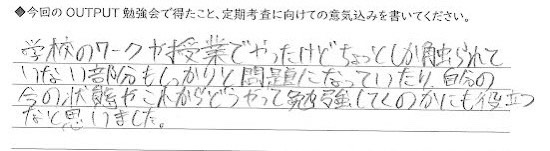 ◆今回の OUTPUT 勉強会で得たこと、定期考査に向けての意気込みを書いてください。
学校のワークや授業でやったけどちょっとしか触られて
いない部分もしっかりと問題になっていたり、自分の
今の状態やこれからどうやって勉強してくのかにも役立つ
なと思いました。